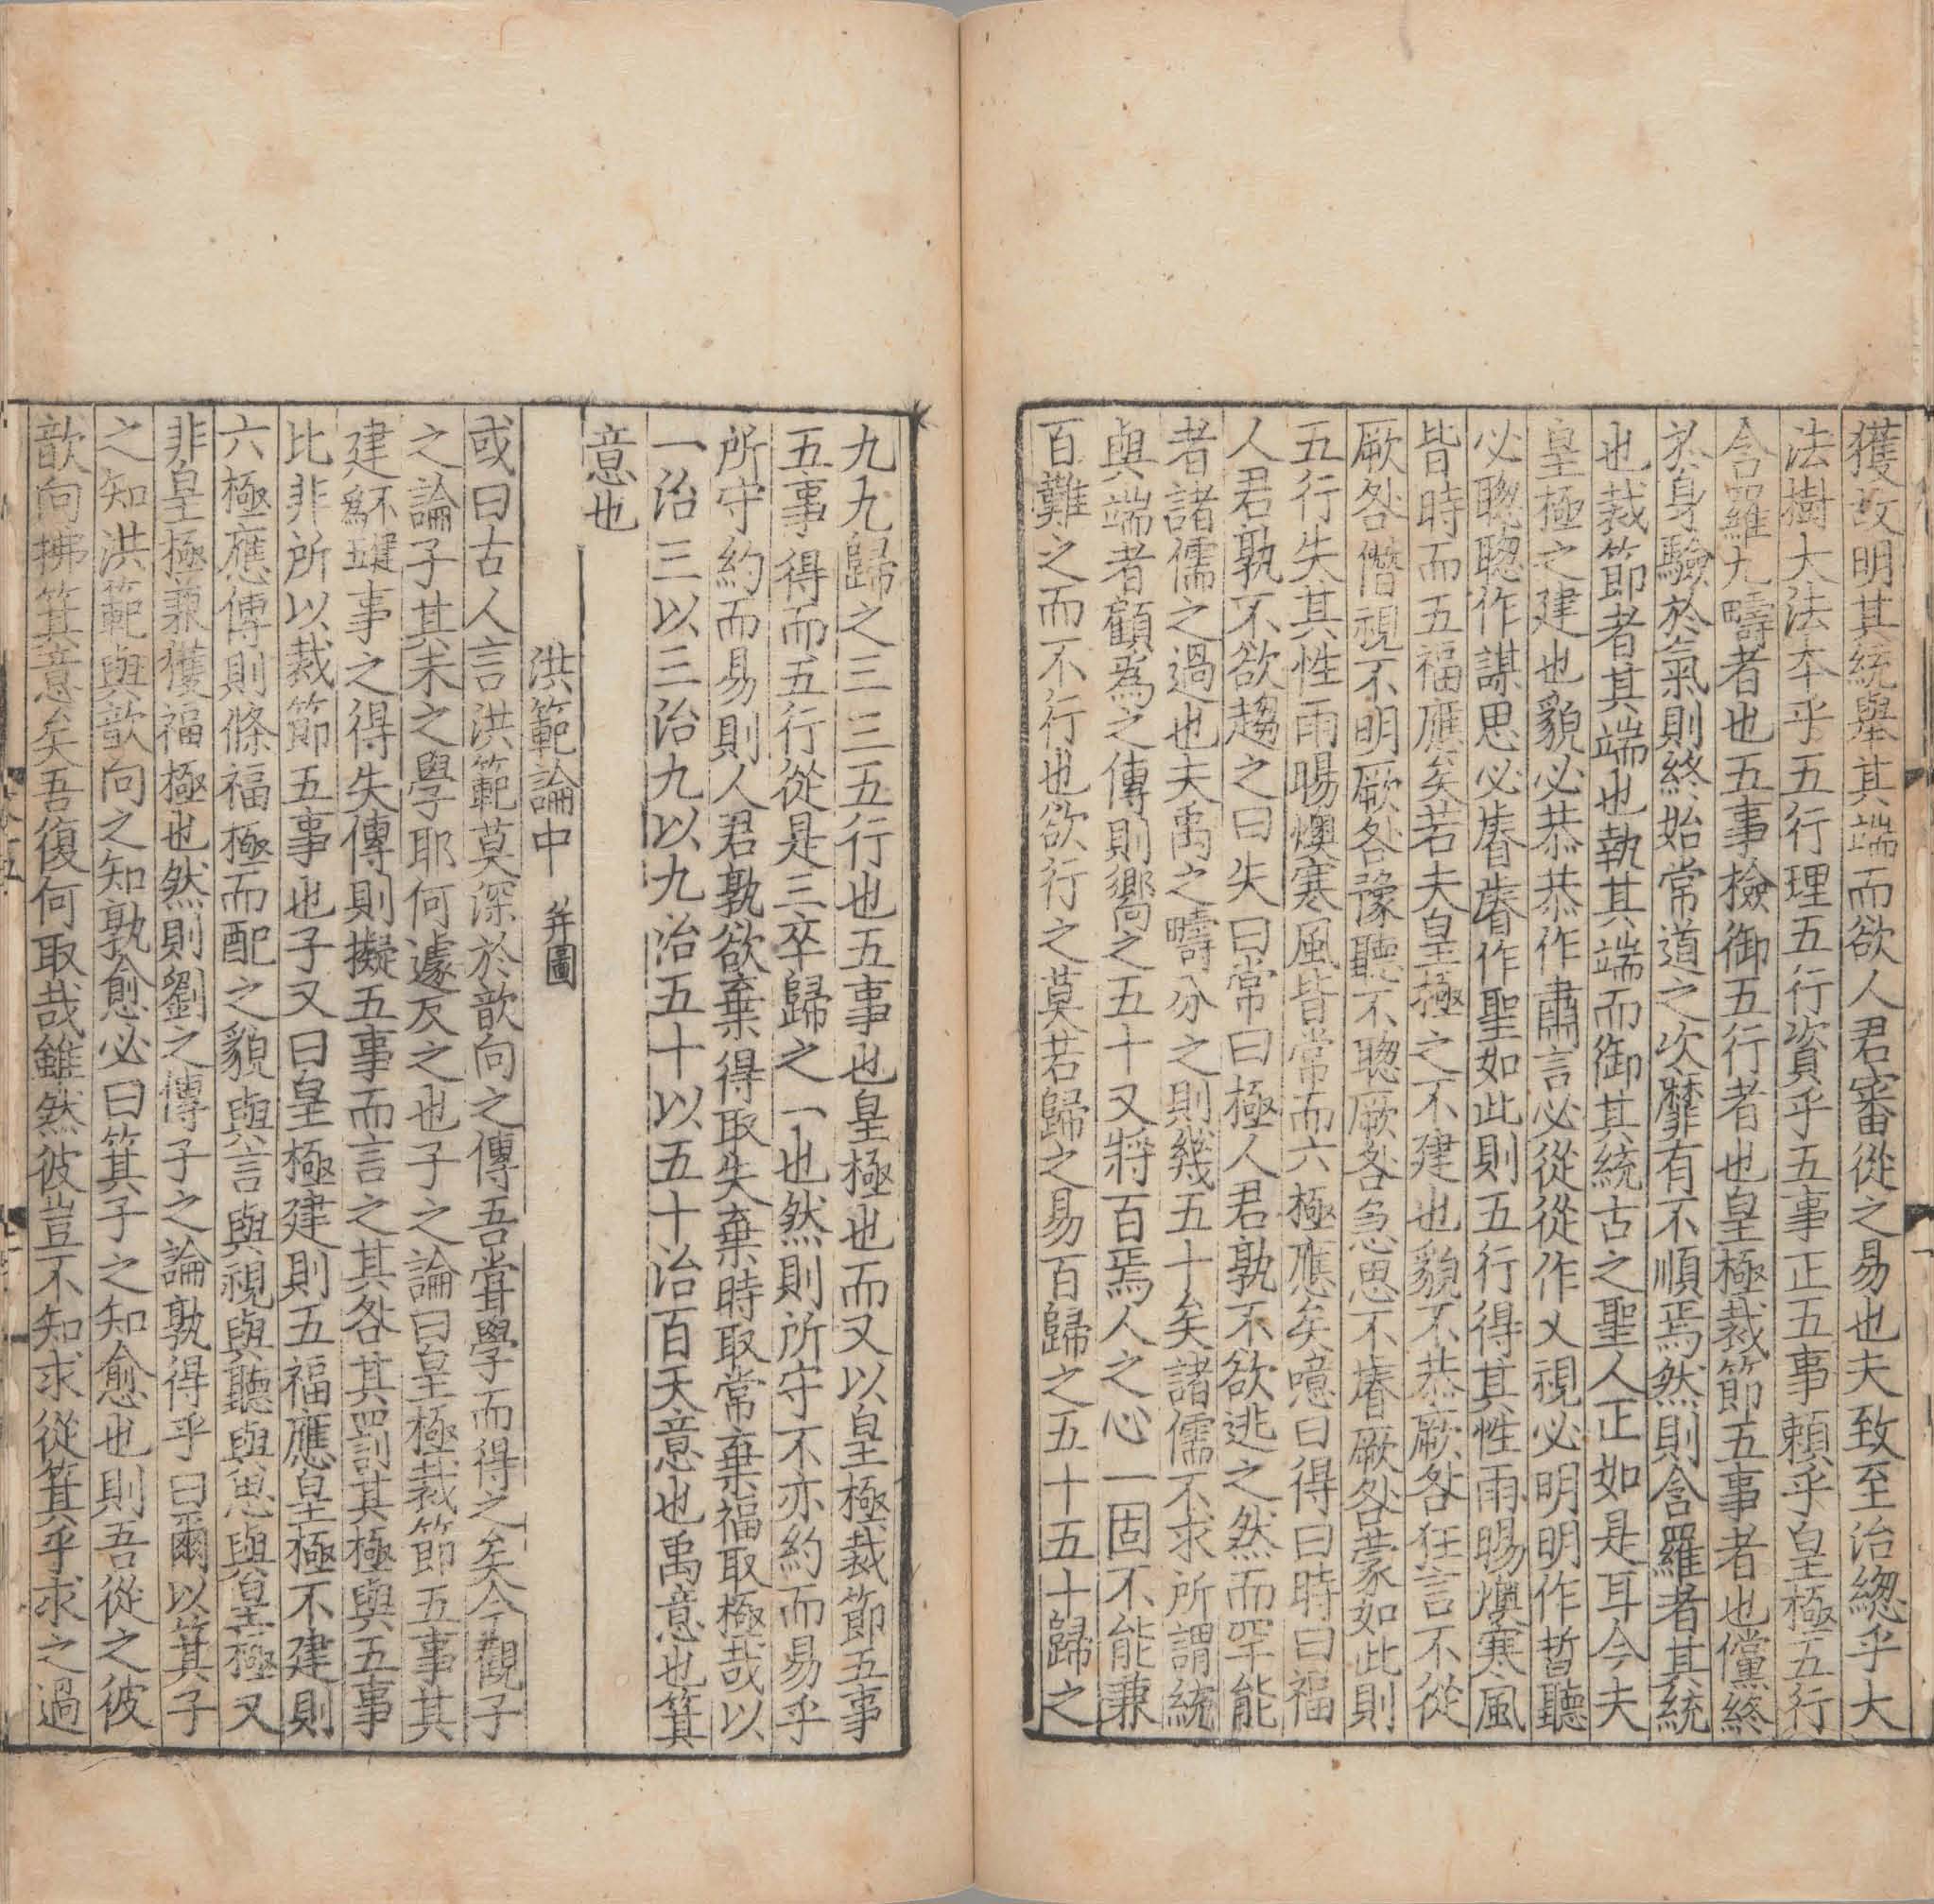 獲故明其統舉其端而欲人君審從之易也夫致至治緫乎大
法樹大法本乎五行理五行資乎五事正五事頼乎皇極五行
含羅九疇者也五事檢御五行者也皇極裁節五事者也儻終
於身驗於氣則終始常道之次靡有不順焉然則含羅者其統
也裁節者其端也執其端而御其統古之聖人正如是耳今夫
皇極之建也貌必恭恭作肅言必從從作乂視必明明作晢聽
必聦聦作謀思必睿睿作聖如此則五行得其性雨暘燠寒風
皆時而五福應矣若夫皇極之不建也貌不恭厥咎狂言不從
厥咎僭視不明厥咎豫聽不聦厥咎急思不睿厥咎蒙如此則
五行失其性雨暘燠寒風皆常而六極應矣噫曰得曰時曰福
人君孰不欲趨之曰失曰常曰極人君孰不欲逃之然而罕能
者諸儒之過也夫禹之疇分之則幾五十矣諸儒不求所謂統
與端者顧爲之傳則嚮之五十又將百焉人之心一固不能兼
百難之而不行也欲行之莫若歸之易百歸之五十五十歸之
九九歸之三三五行也五事也皇極也而又以皇極裁節五事
五事得而五行從是三卒歸之一也然則所守不亦約而易乎
所守約而易則人君孰欲棄得取失棄時取常棄福取極哉以
一治三以三治九以九治五十以五十治百天意也禹意也箕
意也
洪範論中 并圖
或曰古人言洪範莫深於歆向之傳吾甞學而得之矣今觀子
之論子其未之學耶何遽反之也子之論曰皇極裁節五事其
建不建爲五事之得失傳則擬五事而言之其咎其罰其極與五事
比非所以裁節五事也子又曰皇極建則五福應皇極不建則
六極應傳則條福極而配之貌與言與視與聽與思與皇極又
非皇極兼獲福極也然則劉之傳子之論孰得乎曰爾以箕子
之知洪範與歆向之知孰愈必曰箕子之知愈也則吾從之彼
歆向拂箕意矣吾復何取哉雖然彼豈不知求從箕乎求之過